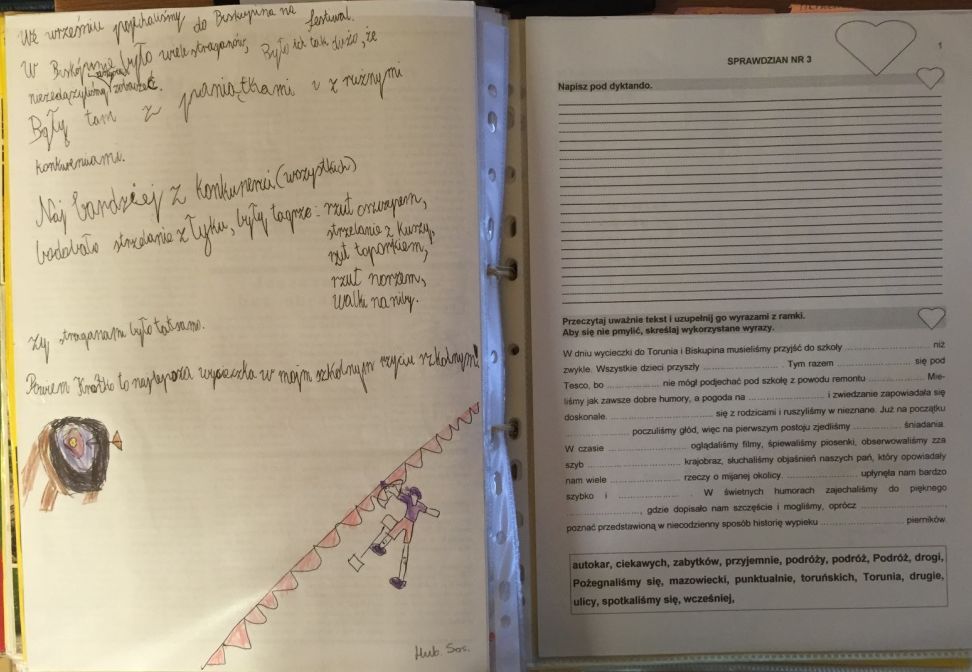 We wrześniu pojechaliśmy do Biskupina na festiwal.
W Biskupinie było wiele straganów, Było ich tak dużo, że
niezdążyliśmy zobaczeć.
Były tam z pamiątkami i z rużnymi
konkurenciami.
Naj bardziej z konkurencii (wszystkich)
bodobało strzelanie z łyku, były tagrze: rzut oszczepem,
strzelanie z kuszy,
rzut toporkiem,
rzut norzem,
walki na niby.
straganami było
to najlepsza wycieczka w mojm szkolnym rzyciu szkolnym!
Hub. Sos.
1
SPRAWDZIAN NR 3
Napisz pod dyktando.
Przeczytaj uważnie tekst i uzupełnij go wyrazami z ramki.
Aby się nie pmylić, skreślaj wykorzystane wyrazy.
W dniu wycieczki do Torunia i Biskupina musieliśmy przyjść do szkoły ........................ niż
zwykle. Wszystkie dzieci przyszły ........................ . Tym razem ........................ się pod
Tesco, bo ........................ nie mógł podjechać pod szkołę z powodu remontu ........................ Mie-
liśmy jak zawsze dobre humory, a pogoda na ........................ i zwiedzanie zapowiadała się
doskonale. ........................ się z rodzicami i ruszyliśmy w nieznane. Już na początku
........................ poczuliśmy głód, więc na pierwszym postoju zjedliśmy ........................ śniadania.
W czasie ........................ oglądaliśmy filmy, śpiewaliśmy piosenki, obserwowaliśmy zza
szyb ........................ krajobraz, słuchaliśmy objaśnień naszych pań, który opowiadały
nam wiele ........................ rzeczy o mijanej okolicy. ........................ upłynęła nam bardzo
szybko i ........................ . W świetnych humorach zajechaliśmy do pięknego
........................, gdzie dopisało nam szczęście i mogliśmy, oprócz ........................,
poznać przedstawioną w niecodzienny sposób historię wypieku ........................ pierników.
autokar, ciekawych, zabytków, przyjemnie, podróży, podróż, Podróż, drogi,
Pożegnaliśmy się, mazowiecki, punktualnie, toruńskich, Torunia, drugie,
ulicy, spotkaliśmy się, wcześniej,